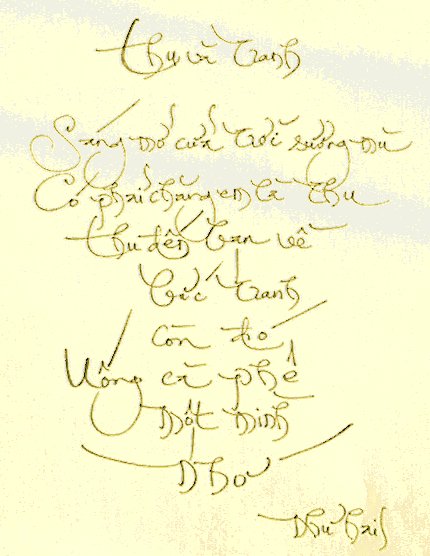 Thu và Tranh
Sáng mở cửa trời sương mù
Có phải chăng em là Thu
Thu đến Van về
Bức Tranh
còn đó
Uống cà phê
một mình
Nhớ
Như